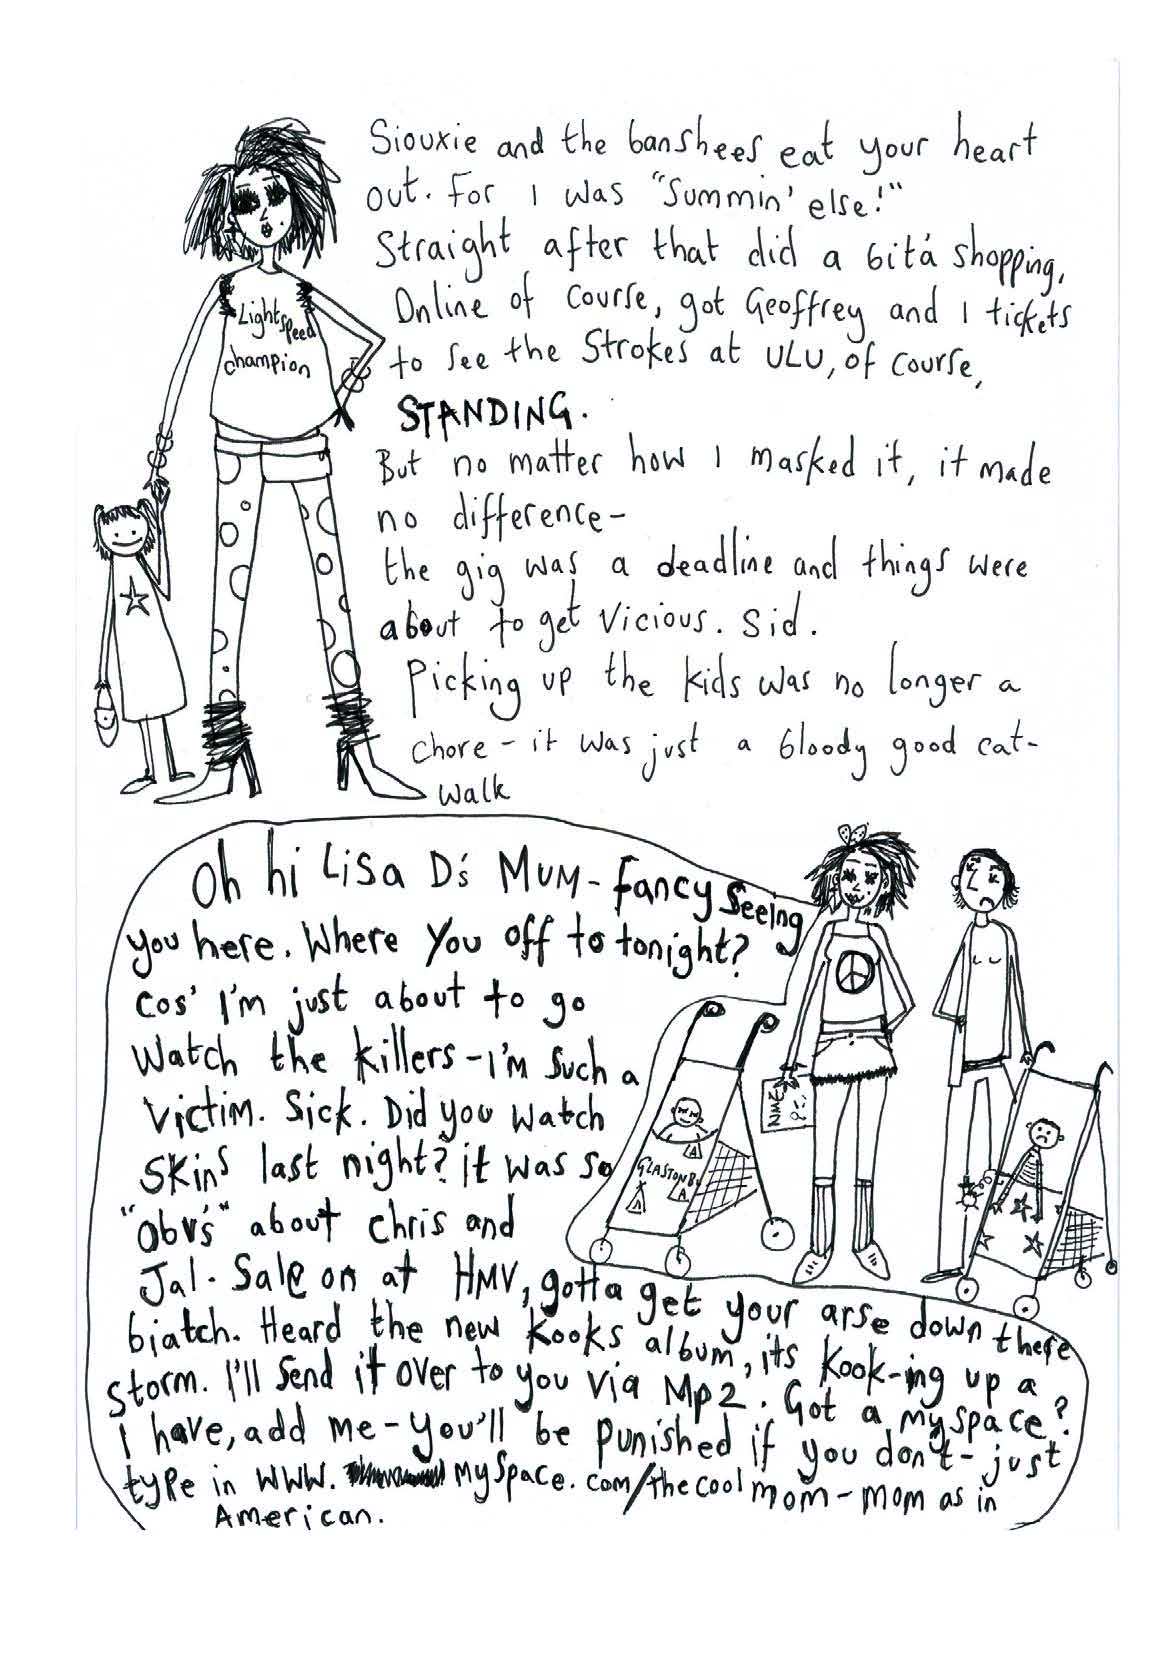 Siouxie and the banshees eat your heart
out. For I was "Summin' else!"
Straight after that did a bitá shopping,
Online of course, got Geoffrey and I tickets
to see the Strokes at ULU, of course,
STANDING.
But no matter how I masked it, it made
no difference-
the gig was a deadline and things were
about to get Vicious. Sid.
Picking up the kids was no longer a
chore - it was just a bloody good cat-
walk
Light speed
champion
Oh hi Lisa D's Mum - fancy seeing
you here. Where you off to tonight?
Cos' I'm just about to go
Watch the killers - I'm such a
Victim. Sick. Did you watch
Skins last night? it was so
"Obv's" about Chris and
Jal. Sale on at HMV, gotta get your arse down there
biatch. Heard the new Kooks album, its Kook-ing up a
storm. I'll send it over to you via Mp2. Got a myspace?
I have, add me - you'll be punished if you don't - just
type in www. myspace.com/thecoolmom - mom as in
American.
NME
GLASTONB